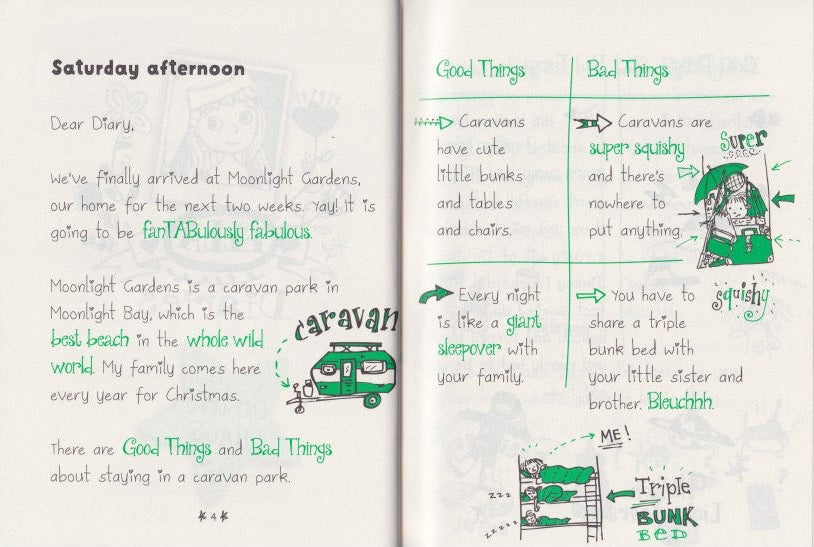 Saturday afternoon
Dear Diary,
We've finally arrived at Moonlight Gardens,
our home for the next two weeks. Yay! It is
going to be fanTABulously fabulous.
Moonlight Gardens is a caravan park in
Moonlight Bay, which is the
best beach in the whole wild
world. My family comes here
every year for Christmas.
caravan
There are Good Things and Bad Things
about staying in a caravan park.
4
Good Things
Bad Things
Caravans
have cute
little bunks
and tables
and chairs.
Caravans are
super squishy
and there's
nowhere to
put anything.
Super
squishy
Every night
is like a giant
sleepover with
your family.
You have to
share a triple
bunk bed with
your little sister and
brother. Bleuchhh.
ME!
zzz
zzzzz
Triple
BUNK
BED